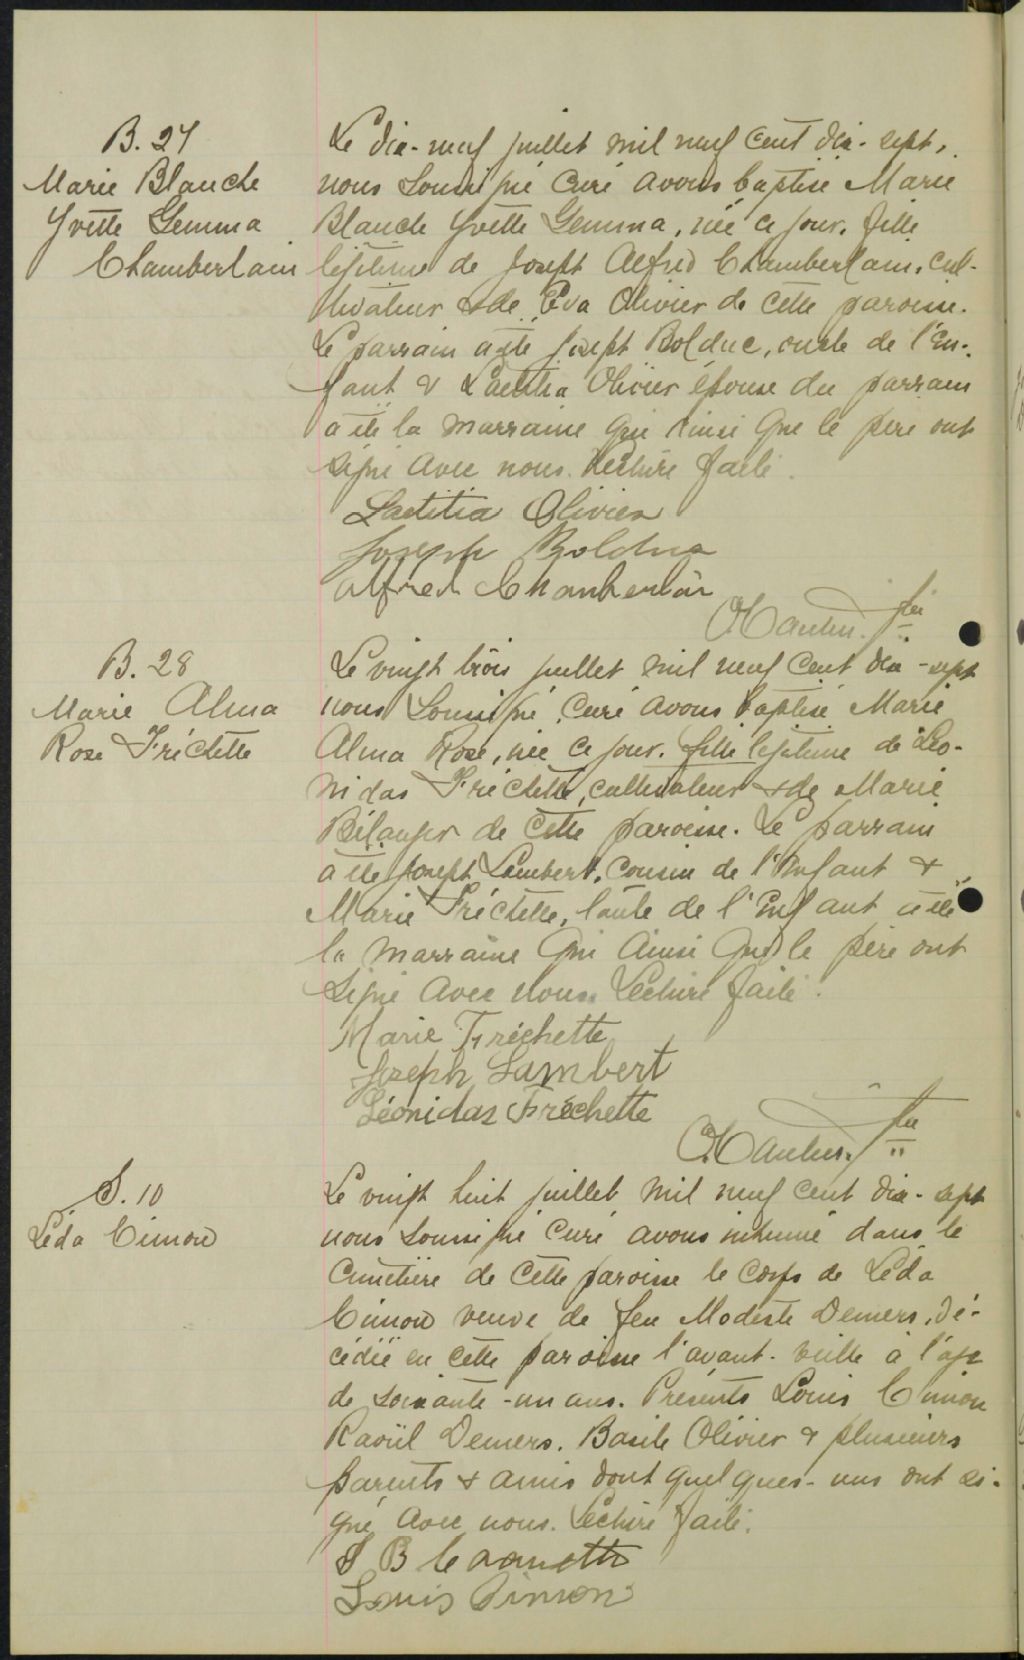 B. 27
Marie Blanche
Yvette Gemma
Chamberlain
Le dix-neuf juillet mil neuf cent dix-sept,
nous soussigné curé avons baptisé Marie
Blanche Yvette Gemma, née ce jour, fille
légitime de Joseph Alfred Chamberlain, cul-
tivateur & de Eva Olivier de cette paroisse.
Le parrain a été Joseph Bolduc, oncle de l'en-
fant & Laetitia Olivier épouse du parrain
a été la marraine qui ainsi que le père ont
signé avec nous. Lecture faite.
Laetitia Olivier
Joseph Bolduc
Alfred Chamberlain
ptre
B. 28
Marie Alma
Rose Fréchette
Le vingt trois juillet mil neuf cent dix-sept
nous soussigné, curé avons baptisé Marie
Alma Rose, née ce jour, fille légitime de Léo-
nidas Fréchette, cultivateur & de Marie
Bélanger de cette paroisse. Le parrain
a été Joseph Lambert, cousin de l'enfant &
Marie Fréchette, tante de l'Enfant a été
la marraine qui ainsi que le père ont
signé avec nous. Lecture faite.
Marie Fréchette
Joseph Lambert
Léonidas Fréchette
ptre
S. 10
Léda Cimon
Le vingt huit juillet mil neuf cent dix-sept
nous soussigné curé avons inhumé dans le
cimetière de cette paroisse le corps de Léda
Cimon veuve de feu Modeste Demers, dé-
cédée en cette paroisse l'avant-veille à l'age
de soixante-un ans. Présents Louis Cimon
Raoül Demers. Basile Olivier & plusieurs
parents & amis dont quelques-uns ont si-
gné avec nous. Lecture faite.
J B
Louis Cimon